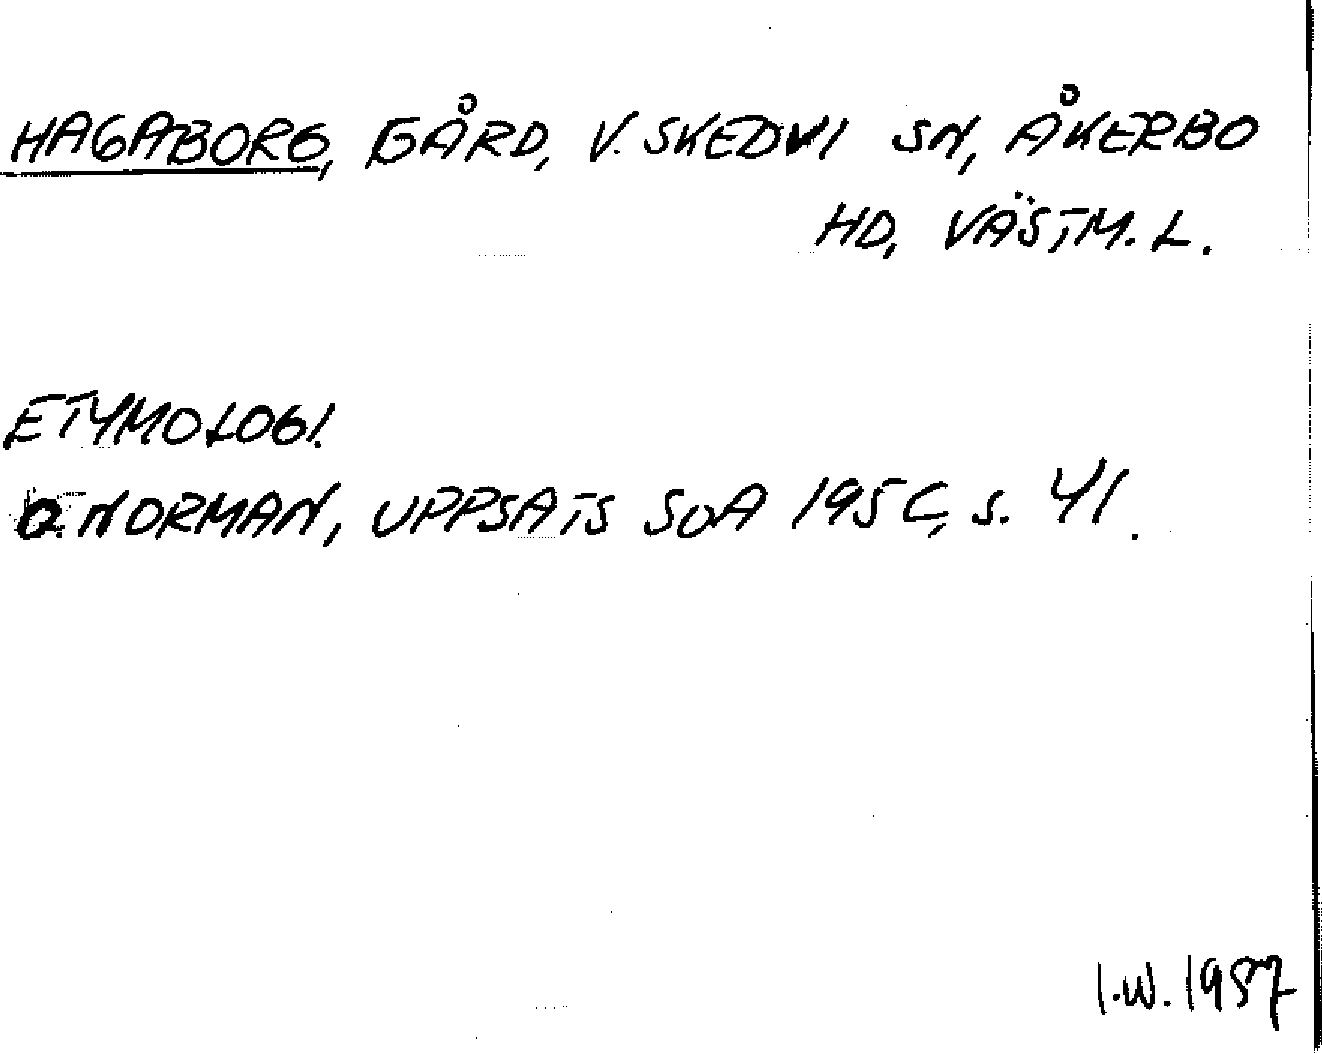 HAGABORG, GÅRD, V. SKEDVI SN, ÅKERBO
HD, VÄSTM. L.
ETYMOLOGI.
NORMAN, UPPSATS SOA 195C, s. 41.
I.W. 1987